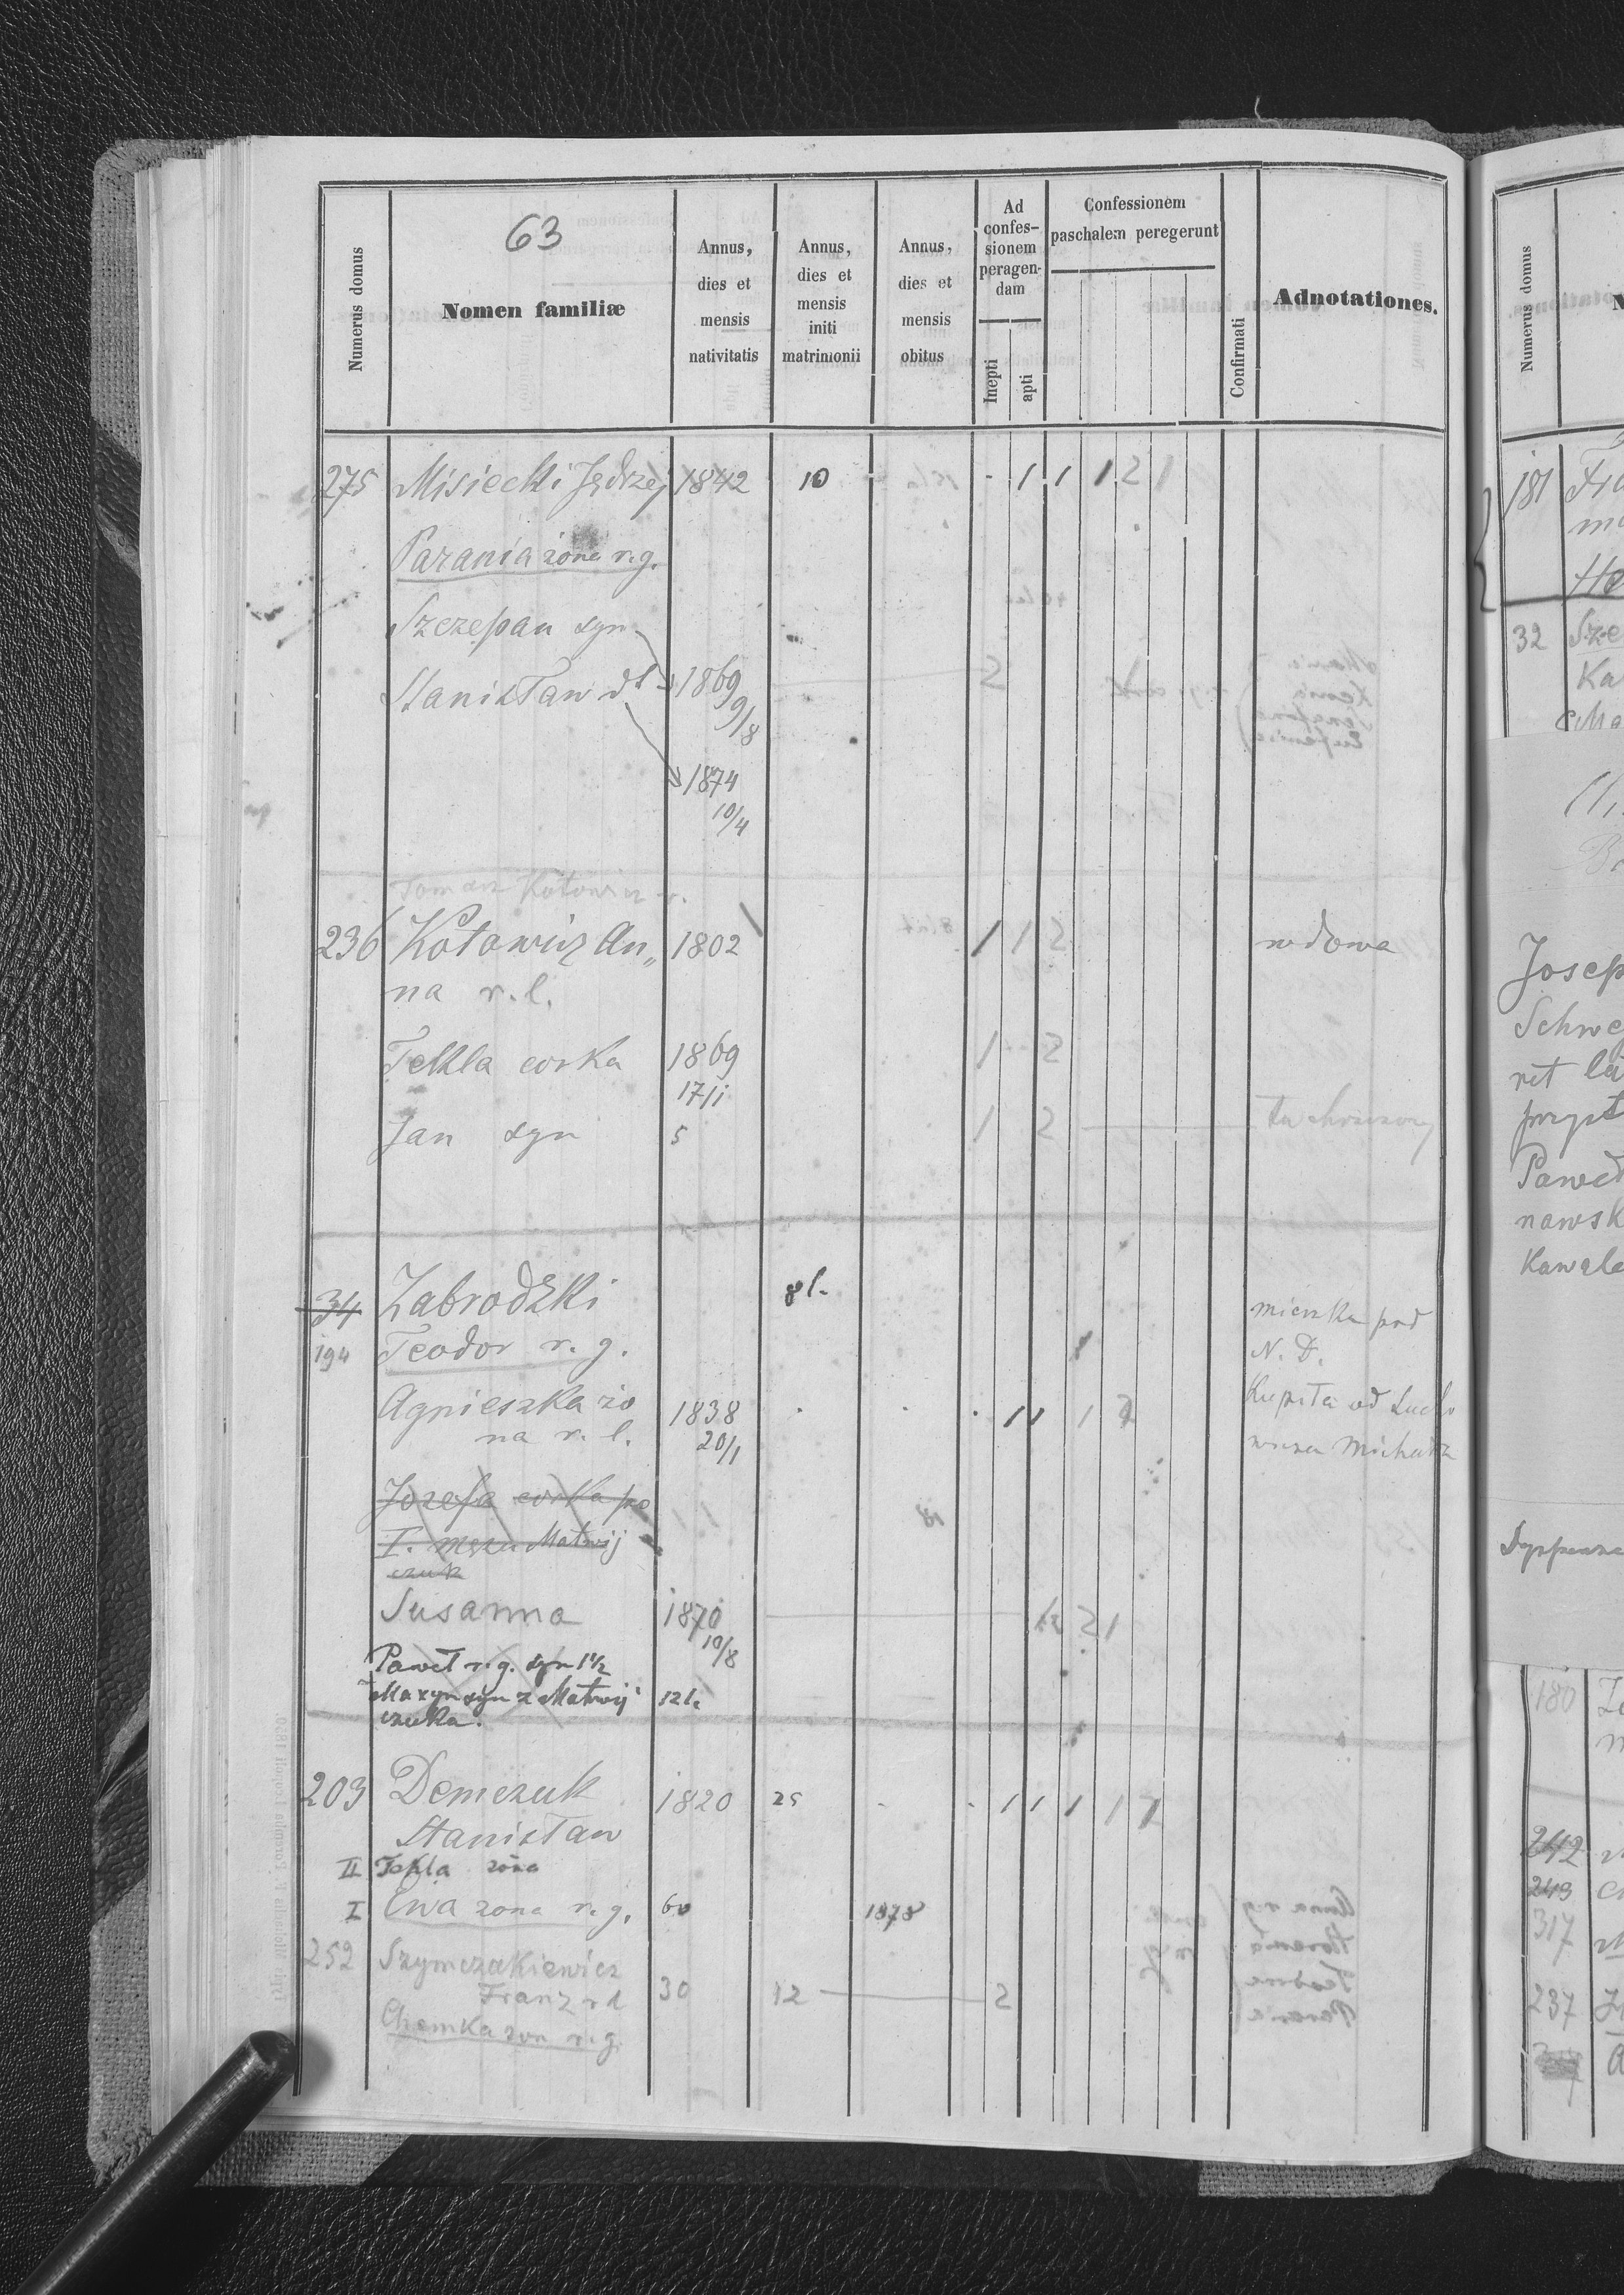 63
Numerus domus
Nomen familiæ
Annus, dies et mensis nativitatis
Annus, dies et mensis initi matrimonii
Annus, dies et mensis obitus
Ad confes-sionem peragen-dam
Inepti
apti
Confessionem paschalem peregerunt
Confirmati
Adnotationes.
275 Misiecki Jędrzej 1842 10 - 1 1 1 2 1
Parania żona r.g.
Szczepan syn
Stanisław dt 1869 9/8 2
1874
10/4
Tomasz Kotowicz
236 Kotowicz An„ 1802 1 1 2 wdowa
na r. l.
Tekla corka 1869 1 2
17/1
Jan syn 5 1 2
34 Zabrodzki 8 l. mieszka pod
194 Teodor r. g. N. D.
Agnieszka żo 1838 1 1 1 2 Kupiła od
na r. l. 20/1
Jozefa corka po
I. mężu Matwij
czuk
Susanna 1870
10/8
Paweł r. g. syn 1½
Maxym syn z Matwij 12 l.
czuka.
203 Demczuk 1820 25 - - 1 1 1 1
Stanisław
II Tekla żona
I Ewa żona r. g. 60 1878
252 Szymczakiewicz
Franz rl 30 12 2
Chemka żon r. g.
Numerus domus
181
32 Sze
Ka
Ma
Josep
Schwe
ret la
przyst
Paweł
nawsk
Kawale
Dyspensa
180
242
243
317
237